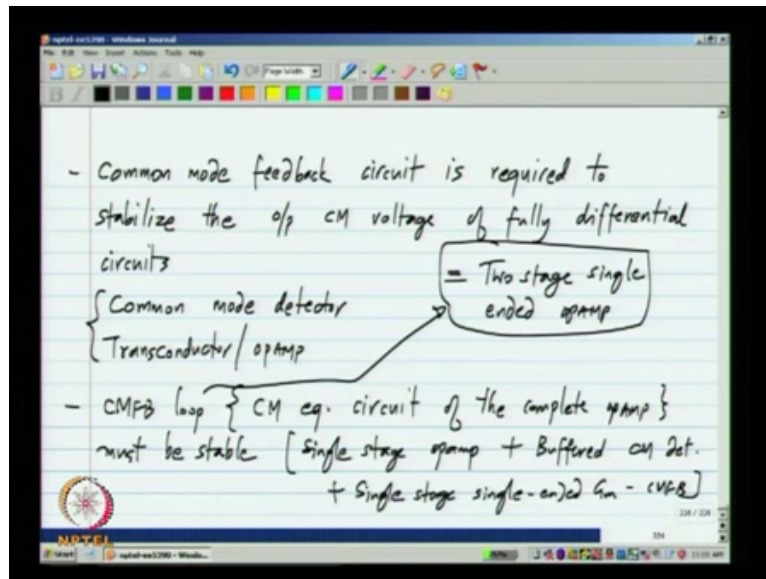 nptel-ee5390 - Windows Journal
File Edit View Insert Actions Tools Help
Page Width
B I
- Common mode feedback circuit is required to
stabilize the o/p CM voltage of fully differential
circuits
= Two stage single
ended opamp
{ Common mode detector
Transconductor / opamp
- CMFB loop { CM eq. circuit of the complete opamp }
must be stable [ Single stage opamp + Buffered CM det.
+ Single stage single-ended Gm - CMFB ]
334 / 334
334
NPTEL
Start
nptel-ee5390 - Windo...
11:03 AM